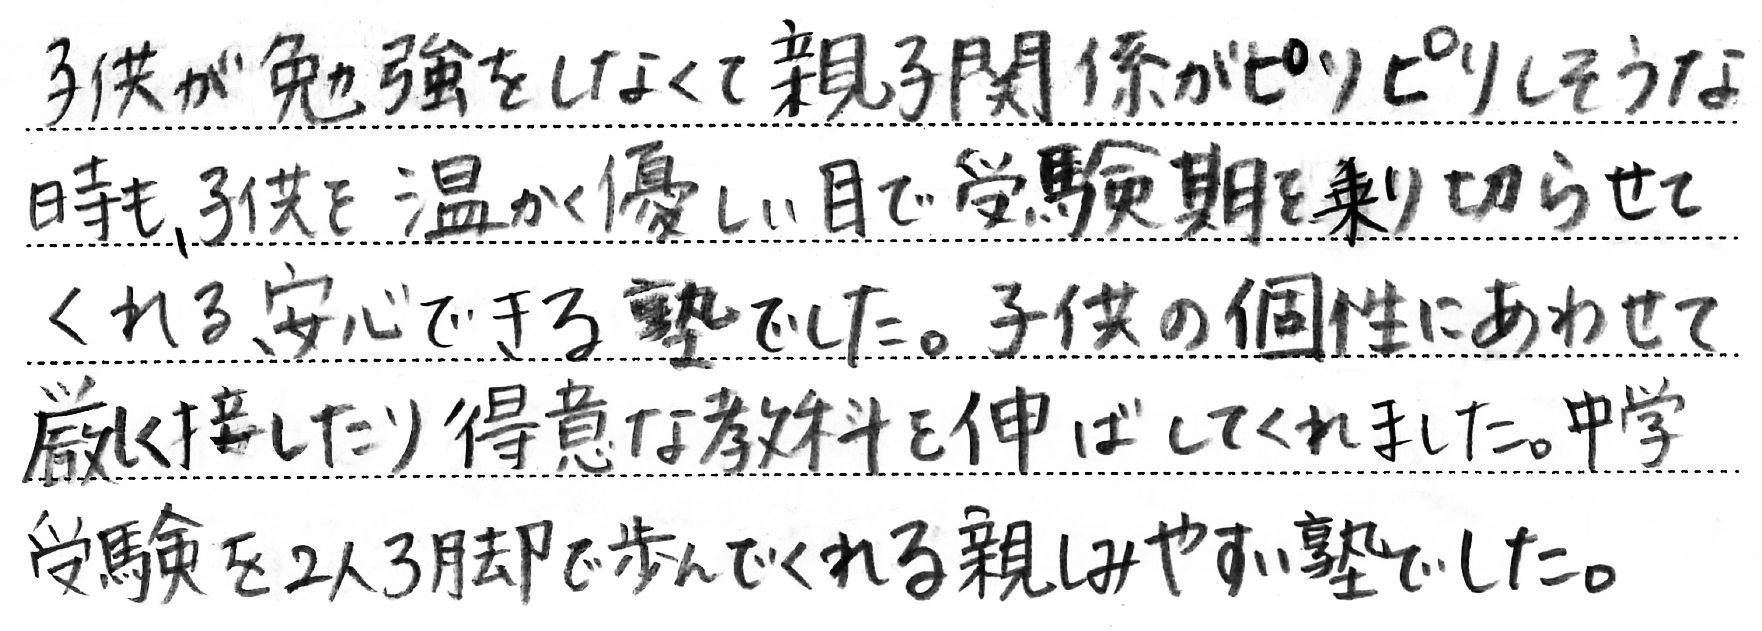 子供が勉強をしなくて親子関係がピリピリしそうな
時も、子供を温かく優しい目で受験期を乗り切らせて
くれる、安心できる塾でした。子供の個性にあわせて
厳しく接したり得意な教科を伸ばしてくれました。中学
受験を2人3脚で歩んでくれる親しみやすい塾でした。